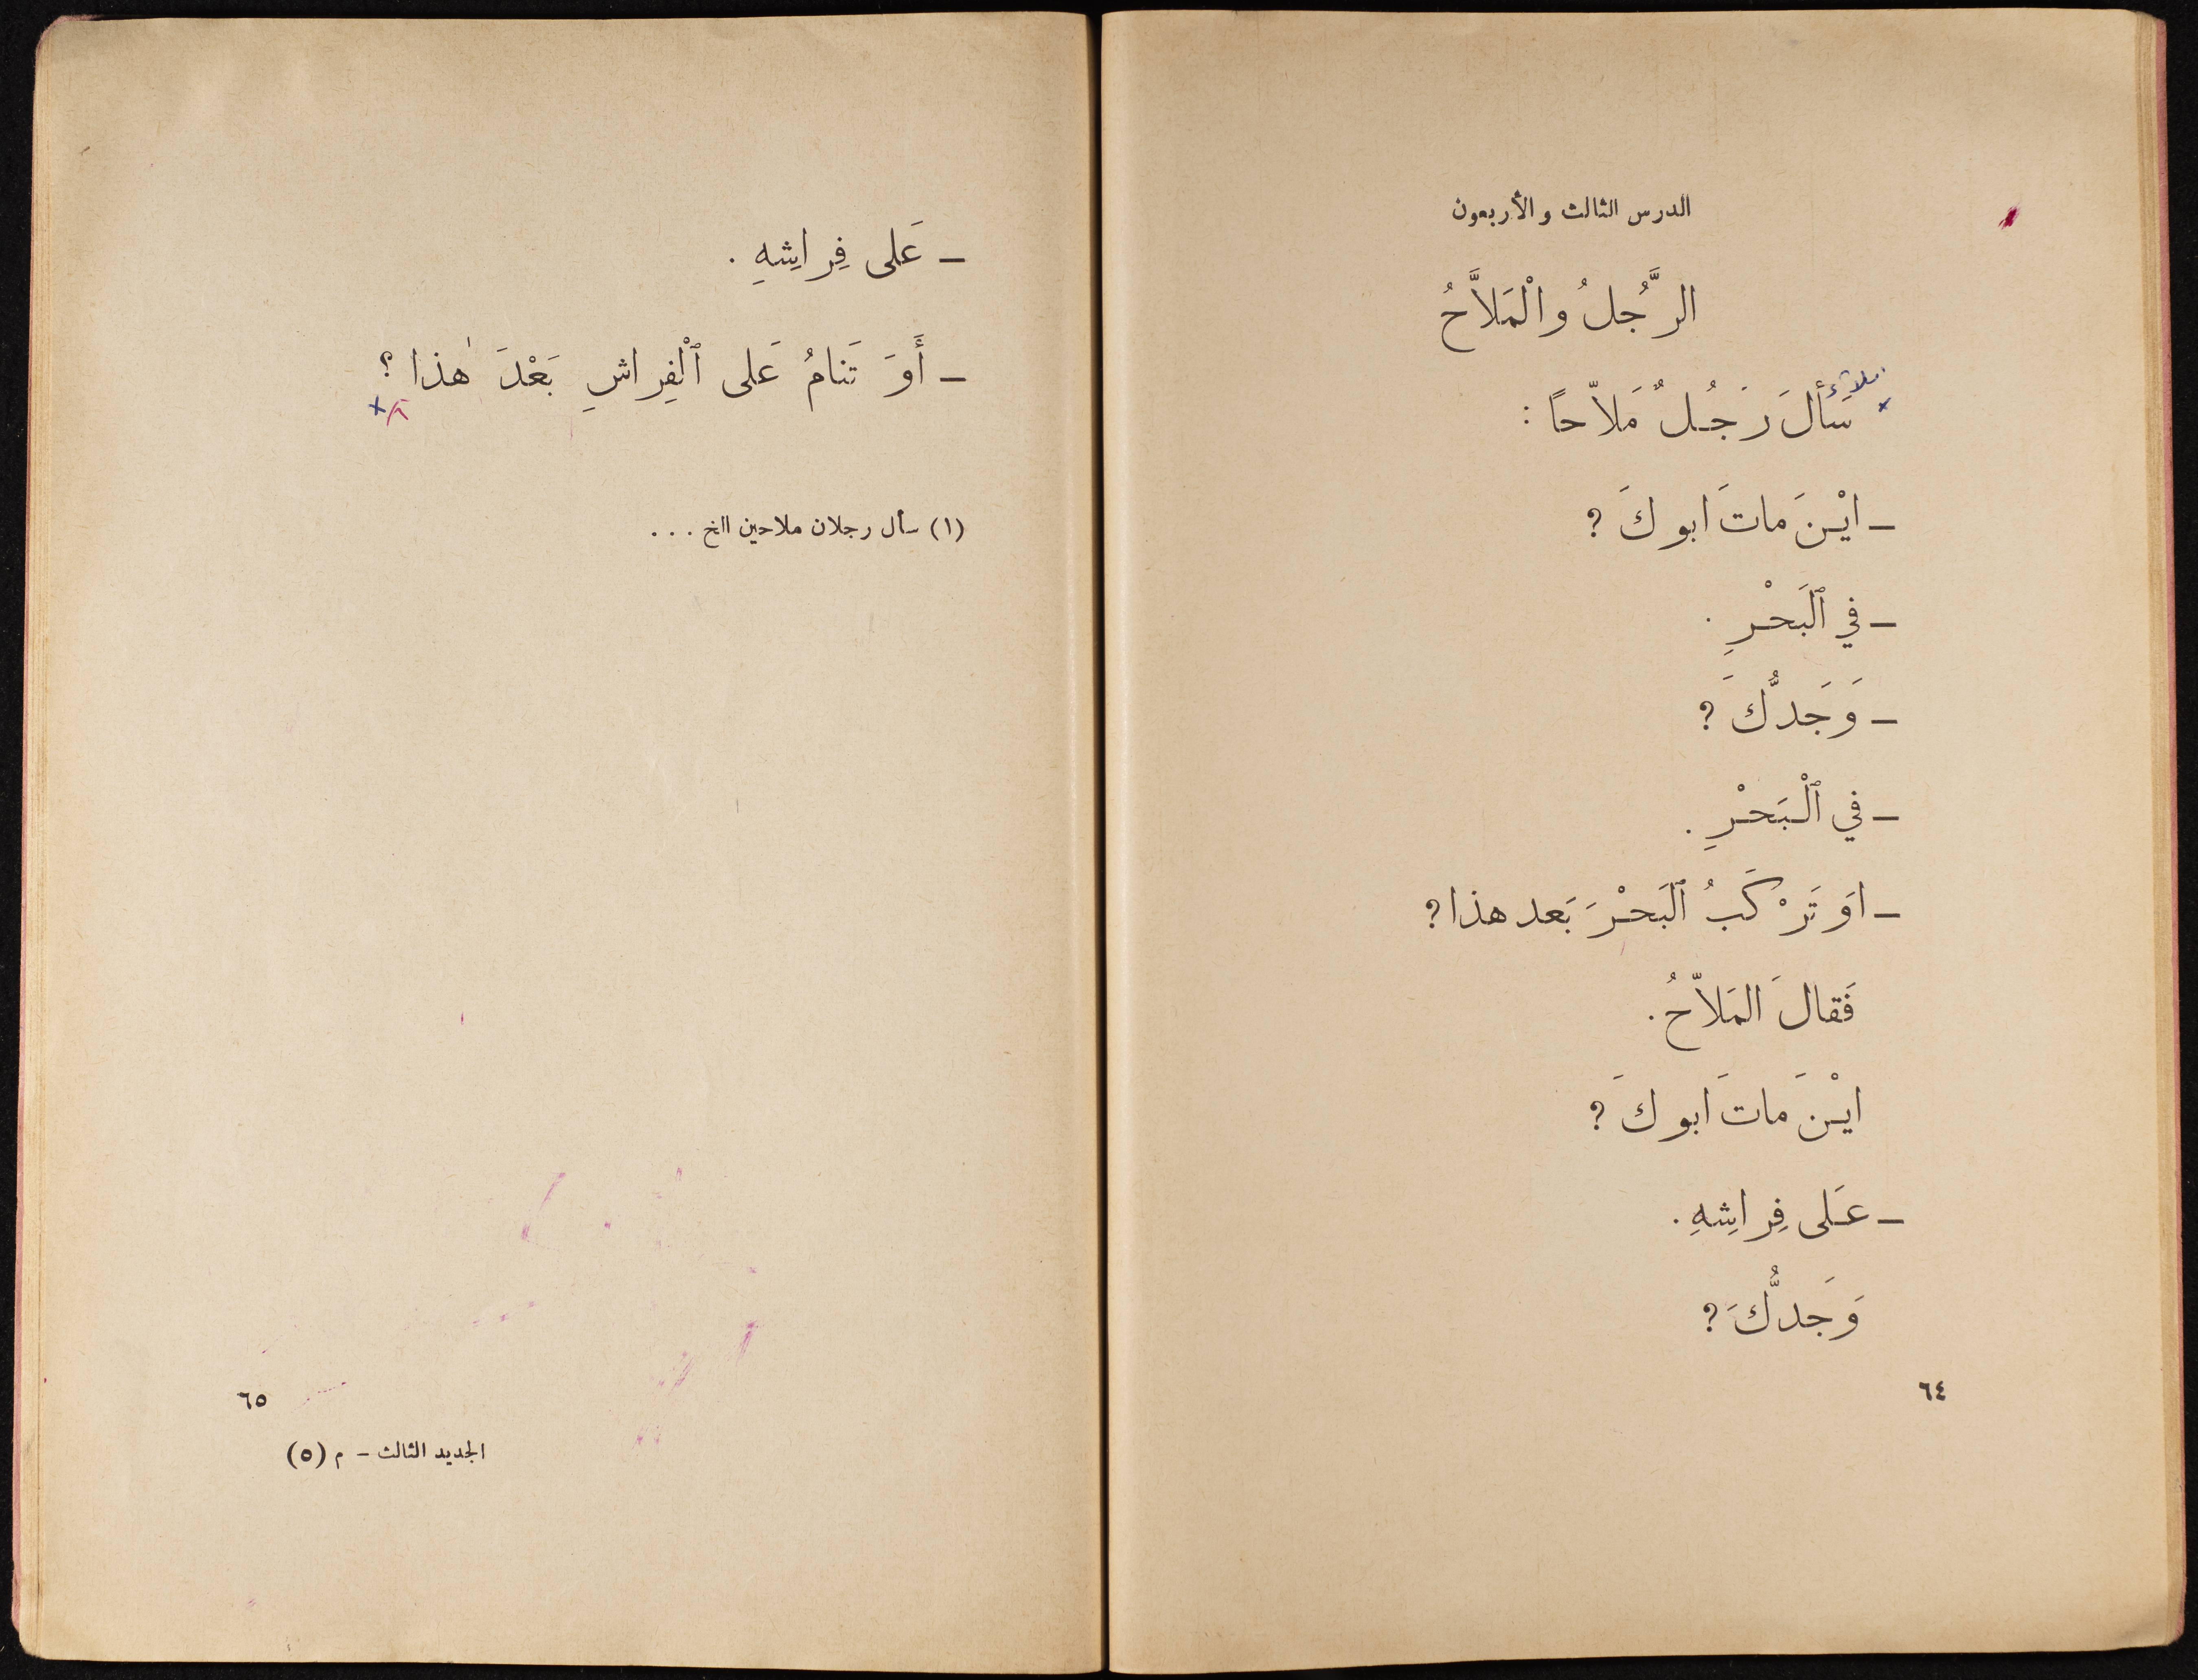 الدرس الثالث والأربعون
الرَّجُلُ والْمَلاَّحُ
إملاء
سَأَلَ رَجُلٌ مَلاّحاً :
– ايْنَ ماتَ ابوكَ ؟
– في ٱلبَحْرِ .
– وَجَدُّكَ ؟
– في ٱلْبَحْرِ .
– اوَ تَرْكَبُ ٱلبَحْرَ بَعد هذا ؟
فَقالَ المَلاّحُ .
ايْنَ ماتَ ابوكَ ؟
– عَلى فِراشِهِ .
وَجَدُّكَ ؟
٦٤
– عَلى فِراشِهِ .
– أَوَ تَنامُ عَلى ٱلْفِراشِ بَعْدَ هٰذا ؟
(١) سأل رجلان ملاحين الخ . . .
٦٥
الجديد الثالث – م (٥)